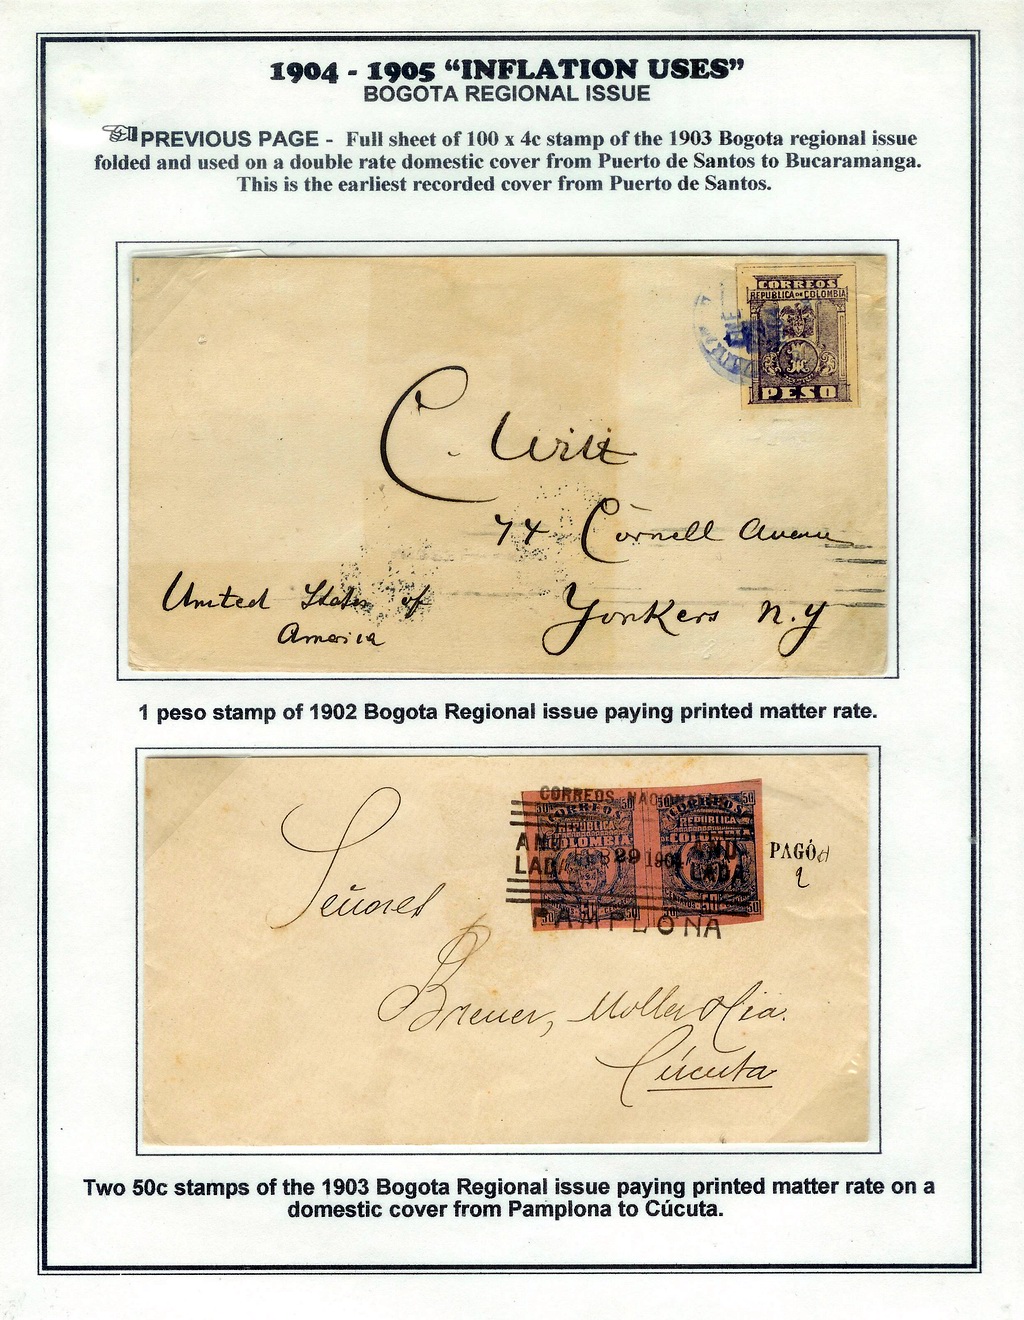 1904 - 1905 “INFLATION USES”
BOGOTA REGIONAL ISSUE
PREVIOUS PAGE - Full sheet of 100 x 4c stamp of the 1903 Bogota regional issue
folded and used on a double rate domestic cover from Puerto de Santos to Bucaramanga.
This is the earliest recorded cover from Puerto de Santos.
CORREOS
REPUBLICA DE COLOMBIA
PESO
C. Witt
74 Cornell Avenue
United States of
America
Yonkers N.Y
1 peso stamp of 1902 Bogota Regional issue paying printed matter rate.
CORREOS NACION
50 CORREOS 50
REPUBLICA
COLOMBIA
50 CORREOS 50
REPUBLICA
COLOMBIA
ANU
LAD
29 1904
ANU
LADA
PAMPLONA
PAGÓ
Señores
Breuer, Moller & Cia.
Cúcuta
Two 50c stamps of the 1903 Bogota Regional issue paying printed matter rate on a
domestic cover from Pamplona to Cúcuta.